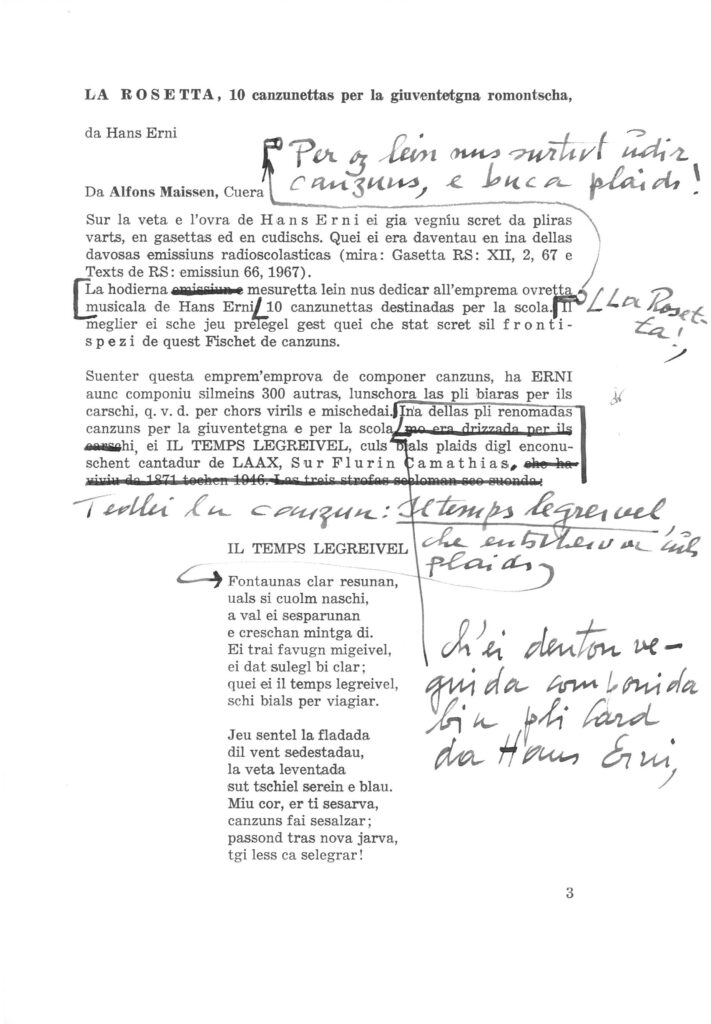 LA ROSETTA, 10 canzunettas per la giuventetgna romontscha,
da Hans Erni
Per oz lein nus surtut udir
canzuns, e buca plaids!
Da Alfons Maissen, Cuera
Sur la veta e l'ovra de Hans Erni ei gia vegníu scret da pliras
varts, en gasettas ed en cudischs. Quei ei era daventau en ina dellas
davosas emissiuns radioscolasticas (mira: Gasetta RS: XII, 2, 67 e
Texts de RS: emissiun 66, 1967).
La hodierna emissiun e mesuretta lein nus dedicar all'emprema ovretta
musicala de Hans Erni, 10 canzunettas destinadas per la scola. Il
La Roset-
ta!,
meglier ei sche jeu prelegel gest quei che stat scret sil fronti-
spezi de quest Fischet de canzuns.
Suenter questa emprem'emprova de componer canzuns, ha ERNI
aunc componiu silmeins 300 autras, lunschora las pli biaras per ils
carschi, q. v. d. per chors virils e mischedai. Ina dellas pli renomadas
canzuns per la giuventetgna e per la scola, mo era drizzada per ils
carschi, ei IL TEMPS LEGREIVEL, culs bials plaids digl enconu-
schent cantadur de LAAX, Sur Flurin Camathias, che ha
viviu da 1871 tochen 1946. Las treis strofas secloman sco suonda:
Tedlei la canzun: Il temps legreivel,
che entscheiva culs
plaids
IL TEMPS LEGREIVEL
Fontaunas clar resunan,
uals si cuolm naschi,
a val ei sesparunan
e creschan mintga di.
Ei trai favugn migeivel,
ei dat sulegl bi clar;
quei ei il temps legreivel,
schi bials per viagiar.
ch'ei denton ve-
gnida componida
bia pli tard
da Hans Erni,
Jeu sentel la fladada
dil vent sedestadau,
la veta leventada
sut tschiel serein e blau.
Miu cor, er ti sesarva,
canzuns fai sesalzar;
passond tras nova jarva,
tgi less ca selegrar!
3